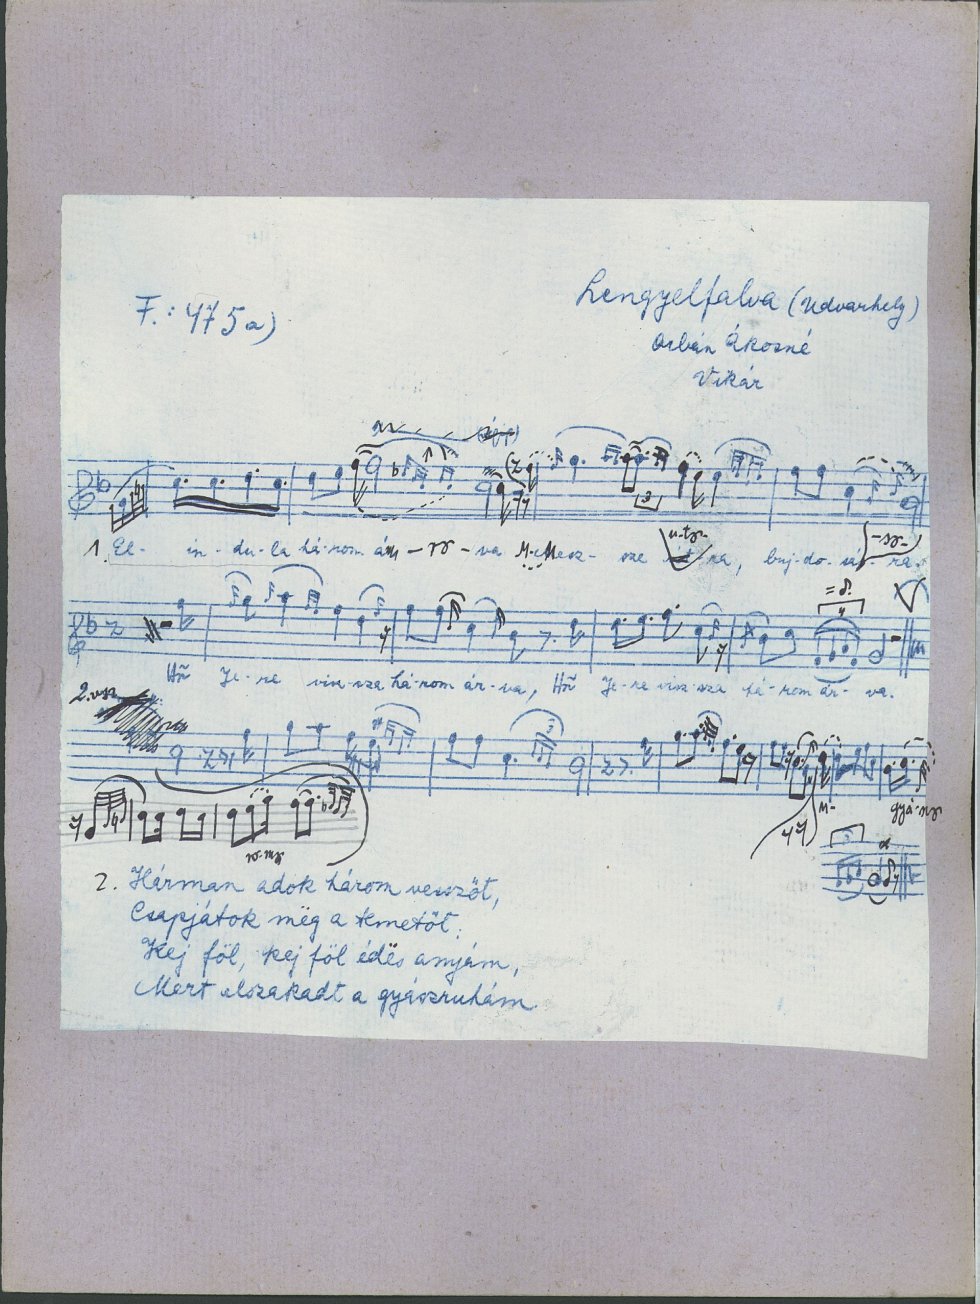 F.: 475a)
Lengyelfalva (Udvarhely)
Orbán Ákosné
Vikár
1. El- in-du-la há-rom ár- va Mesz- sze út-ra, buj-do-
Je-re visz-sza há-rom ár-va, Je-re visz-sza há-rom ár-va.
2. vsz.
2. Hárman adok három vesszőt,
Csapjátok mëg a temetőt,
Kej föl, kej föl édës anyám,
Mert elszakadt a gyászruhám